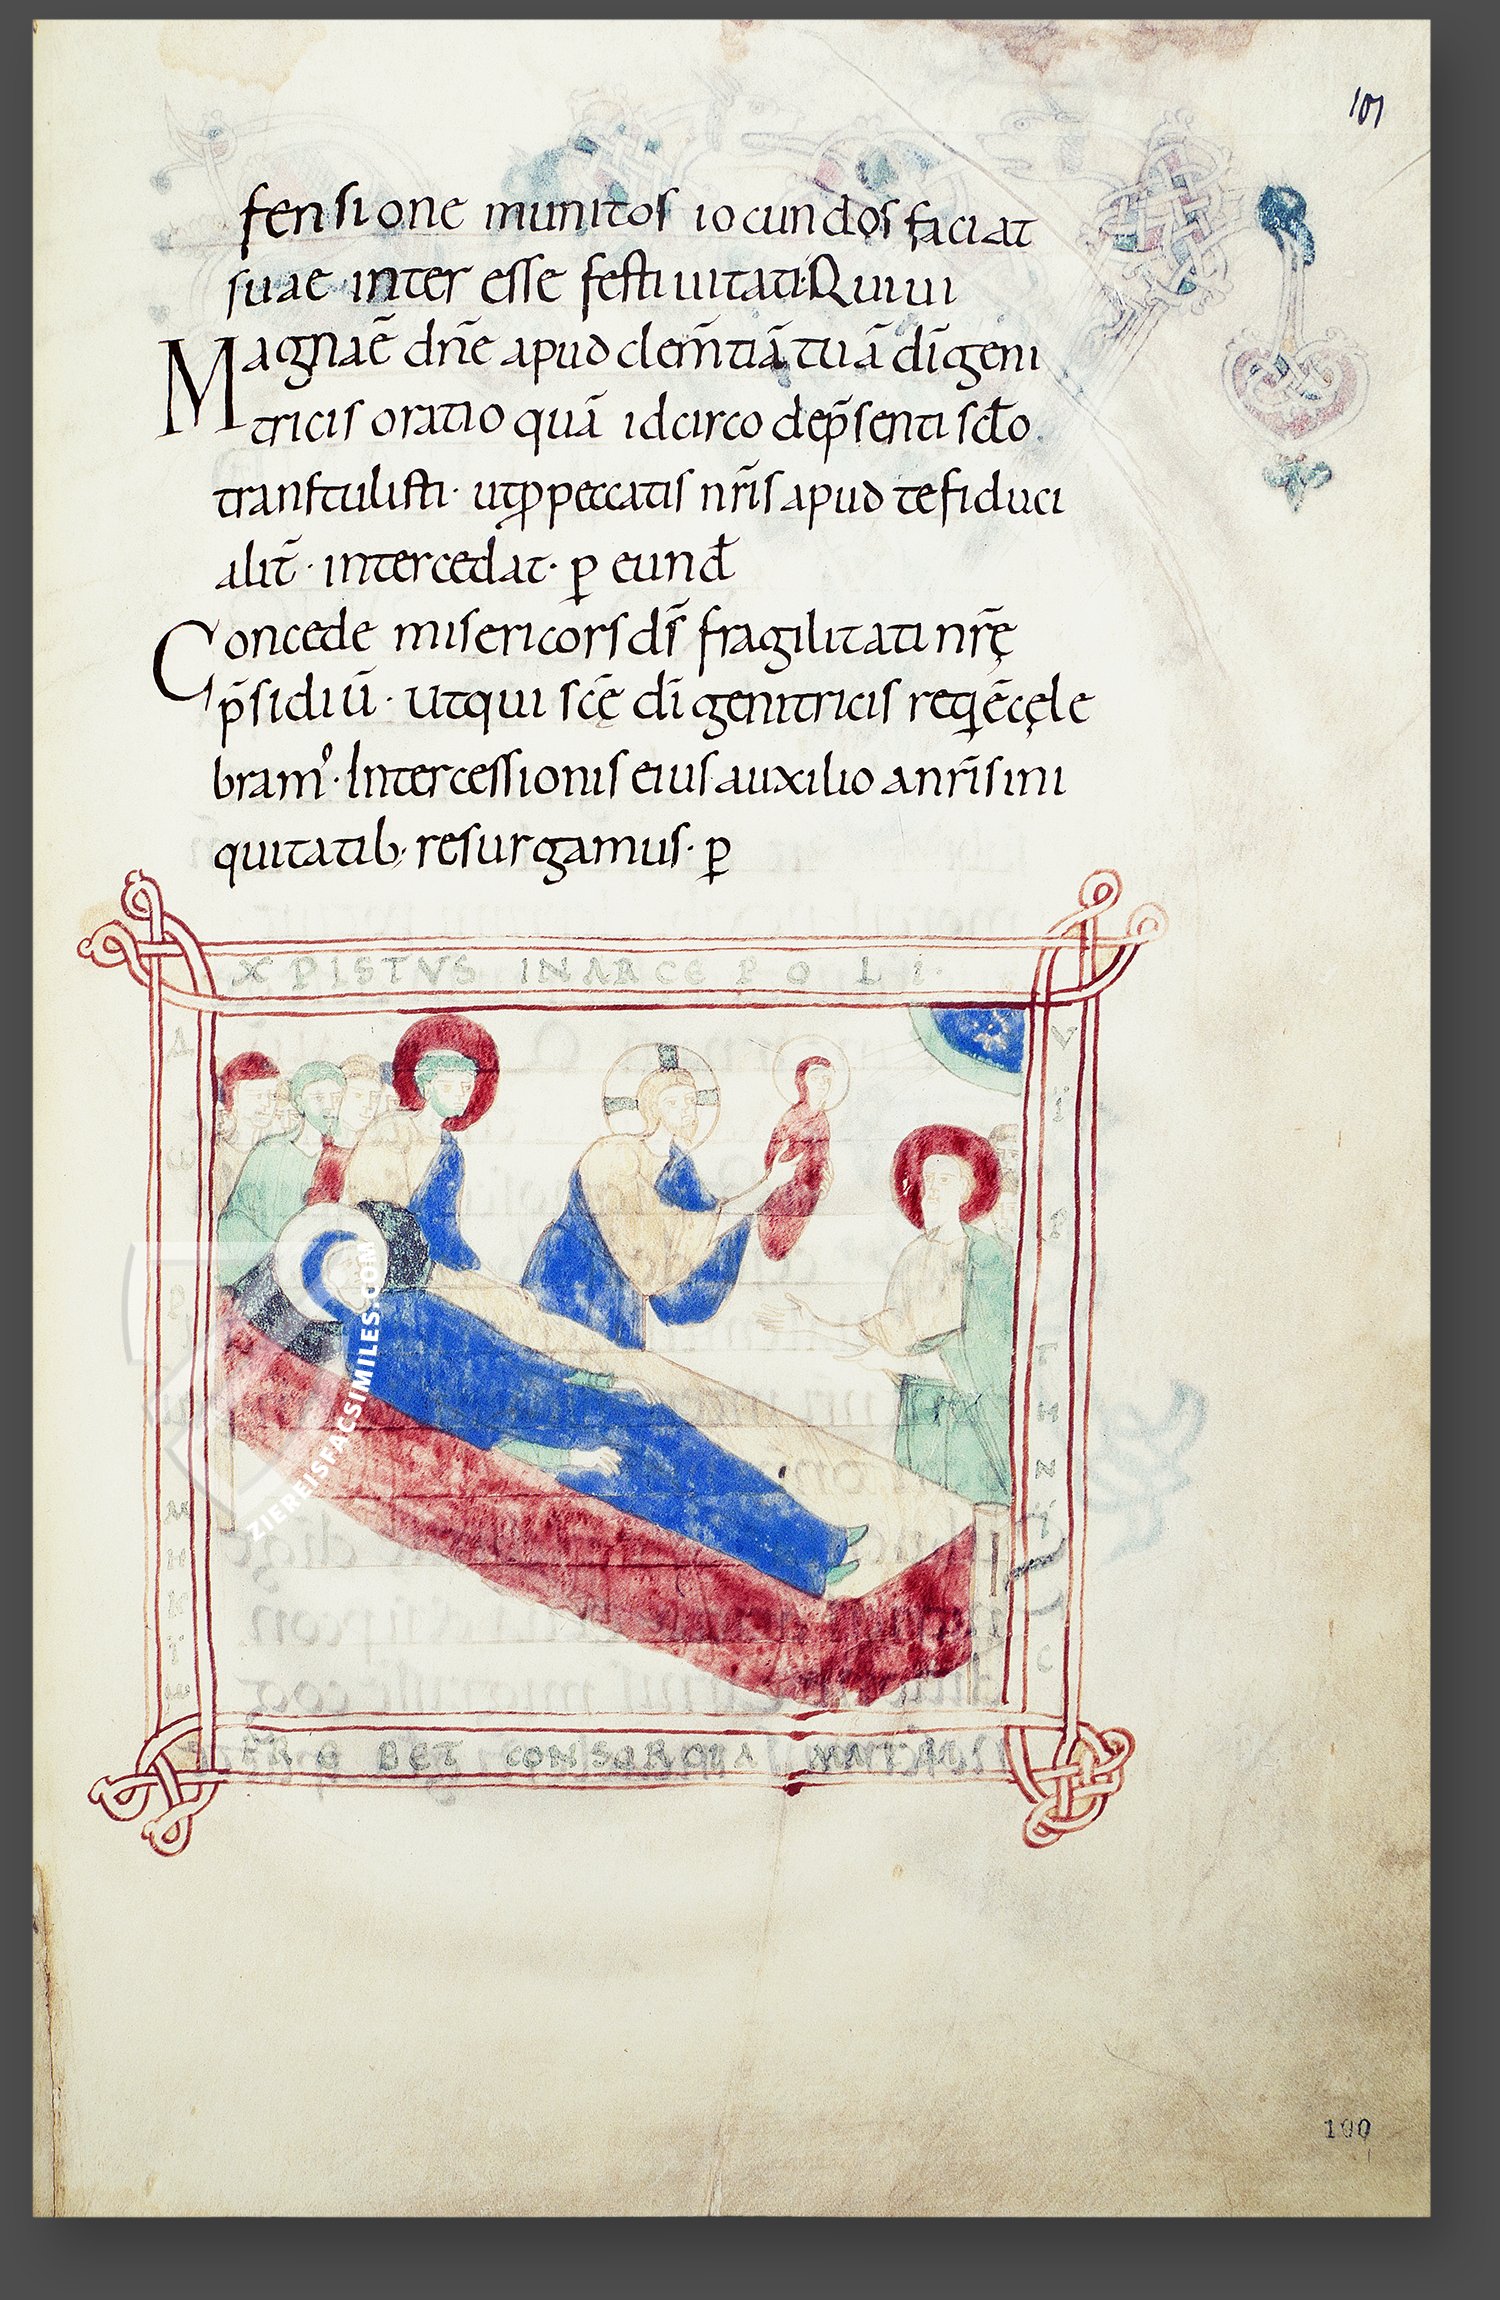 107
fensione munitos iocundos faciat
suae inter esse festiuitati· Qui ui ui
Magnaē dn̄e apud clem̄tiā tuā dī geni
tricis oratio quā idcirco dep̄senti scƚo
transtulisti· utp̱ peccatis nr̄is apud te fiduci
alit̄· intercedat· p̱ eund̄
Concede misericors ds̄ fragilitati nr̄ę
p̄sidiū· Ut qui scę̄ dī genitricis requiēcęle
bram᾿· Intercessionis eius auxilio a nr̄is ini
quitatib; resurgamus· p̱
XPISTVS IN ARCE POLI·
ZIEREISFACSIMILES.COM
100